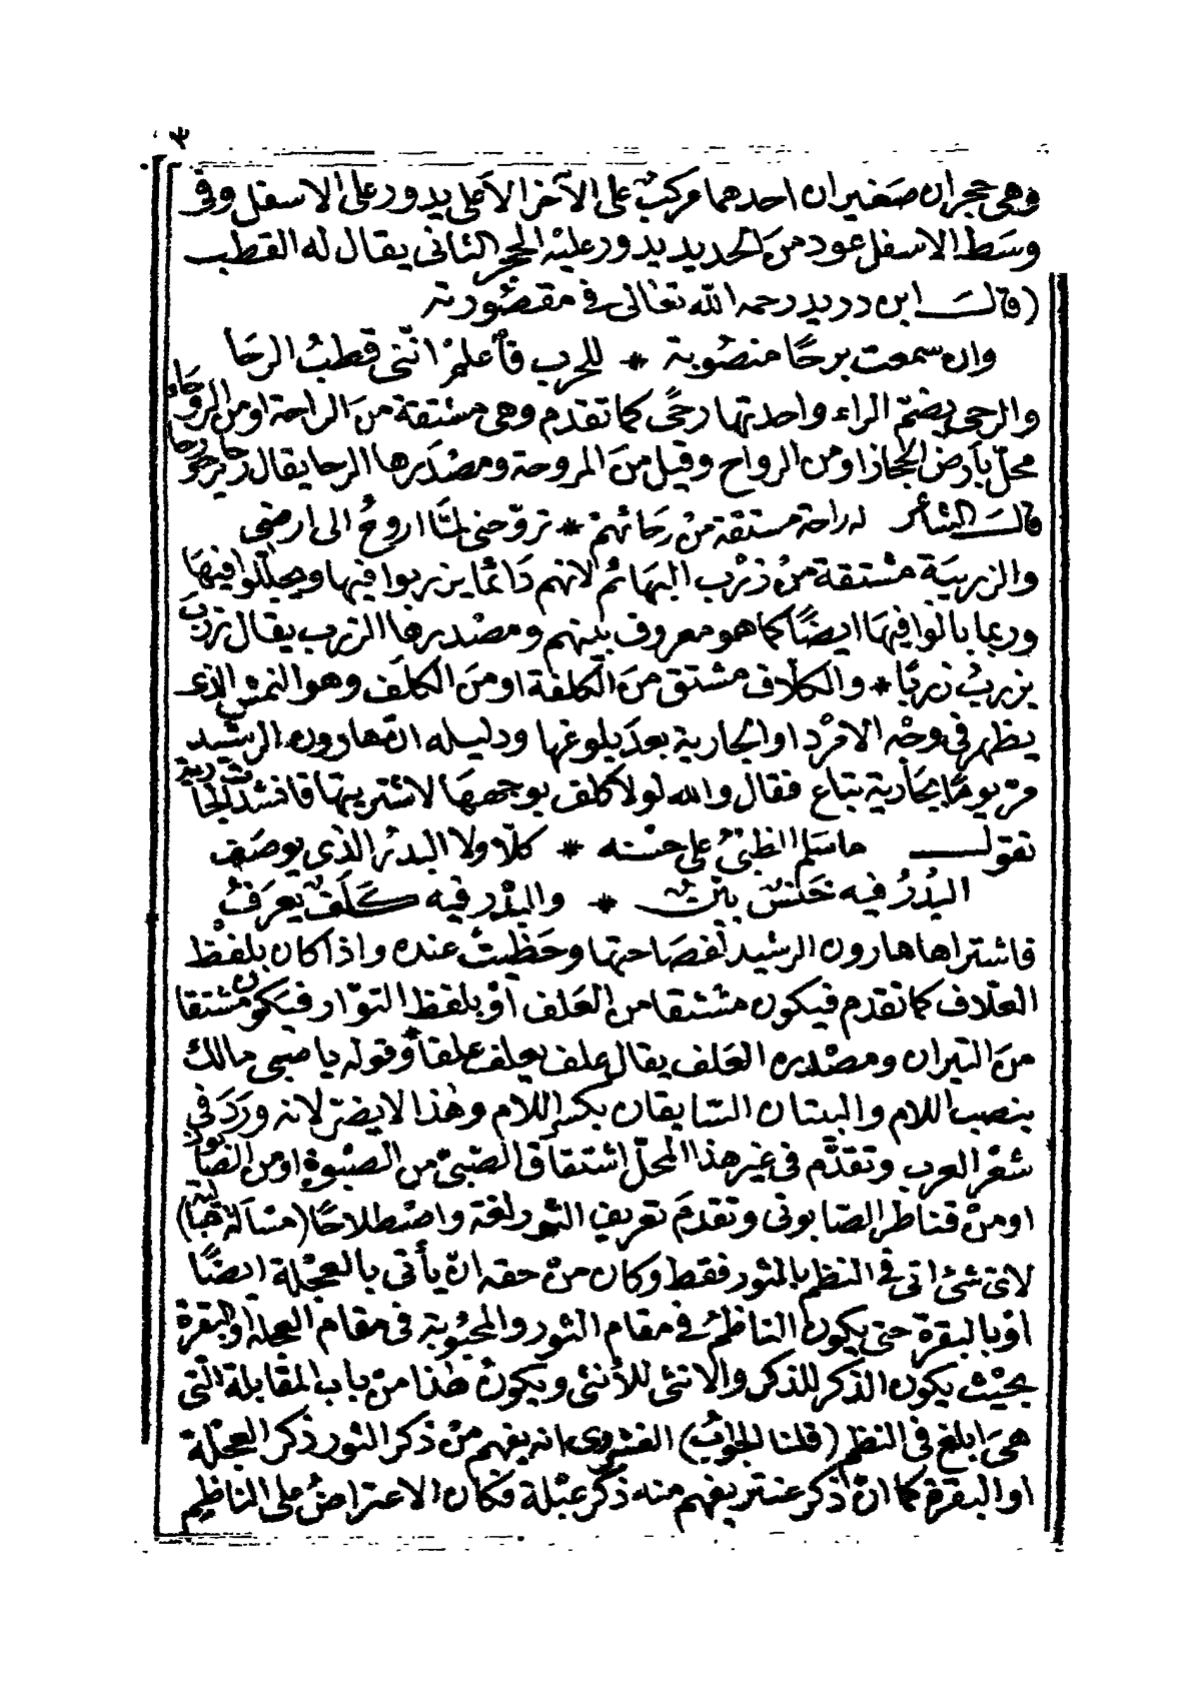 ٣
وهى حجران صغيران احدهما مركبٌ على الآخر الاعلى يدور على الاسفل وفى
وسَط الاسفل عود منَ الحديد يدور عليْه الحجر الثانى يقال له القطب
(قالـــَ ابن دريد رحمه الله تعالى فى مقصُورته
وان سمعت برحًا منصُوبة * للحرب فاعلمْ انّنى قطبُ الرحَا
والرحى بضمّ الراء واحدتها رحًى كما تقدم وهى مشتقة منَ الراحة او من الروحَاء
محلّ بأرض الحجاز او من الرواح وقيل منَ المروحة ومصْدَرها الرحا يقال رحَا يرحو رحا
قالـَ الشاعر له راحة مشتقة منْ رحَائهم * تروّحنى لمَّا اروحُ الى ارضى
والزريبَة مشتقة منْ زرْب البهائم لانهم دَائما يزربوا فيها ويحيلّوا فيهَا
وربما بالوا فيهَا ايضًا كما هو معروف بَينهم ومصْدرها الزرب يقال زربَ
يزربُ زربًا * والكلّاف مشتق منَ الكلفة او منَ الكلَف وهو النمش الذى
يظهر فى وجْه الامْرد او الجارية بعدَ بلوغها ودليله انّ هارون الرشيد
مرّ يومًا بجَارية تباع فقال والله لولا كلف بوجهها لاشتريتها فانشدَت الجارية
تقولـــ ماسَلم الظبىُ على حسْنه * كلّا ولا البدرُ الذى يوصَف
البدْرُ فيه خَنَسٌ بيّنٌ * والبدْر فيه كَلَفٌ يعرَفُ
فاشتراها هارون الرشيد لفصَاحتها وحَظِيتْ عنده واذا كان بلفظ
العلّاف كما تقدم فيكون مشتقا من العَلف اوْ بلفظ التوّار فيَكون مشتقا
منَ التيران ومصْدره العَلف يقال علف يعلف علفا * وقوله يا صبى مالكَ
بنصب اللام والبيتان السّابقان بكسْر اللام وهٰذا لا يضرّ لانه ورَدَ فى
شعْر العرب وتقدّم فى غير هذا المحلّ اشتقاق الصَبىّ من الصبْوةِ او من الصَابون
او منْ قناطر الصّابونى وتقدمَ تعريف الثور لغة واصْطلاحًا (مسْألة هبَالية)
لاىّ شئ اتى فى النظم بالثور فقط وكان منْ حقه انْ يأتى بالعجْلة ايضًا
اوْ بالبقرة حتى يكون الناظمُ فى مقام الثور والمحبُوبة فى مقام العجلة او البقرة
بحيْث يكون الذكر للذكر والانثى للأنثى ويكونُ هٰذا منْ باب المقابلة التى
هىَ ابلغ فى النظم (قلنا الجوابُ) الفشروى انه يفهم منْ ذكر الثور ذكر العجْلة
او البقرة كما انّ ذكر عنتر يفهم منه ذكر عبْلة فكان الاعتراضُ على الناظم